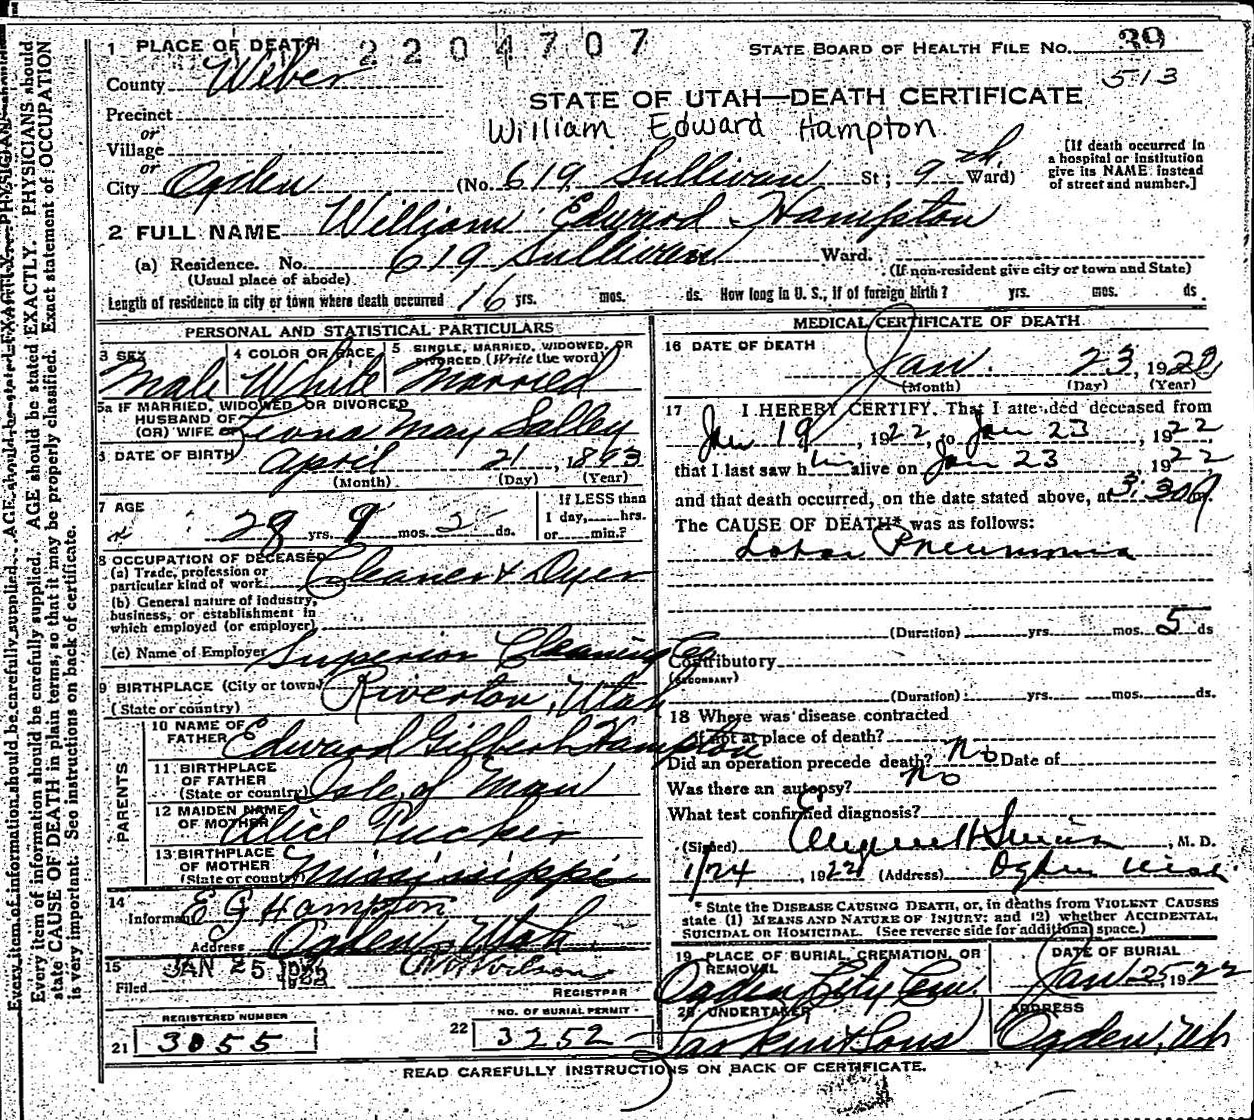 1 PLACE OF DEATH
2204707
STATE BOARD OF HEALTH FILE NO. 39
County Weber
513
STATE OF UTAH—DEATH CERTIFICATE
Precinct
William Edward Hampton
or
Village
or
City Ogden (No. 619 Sullivan St; 9th Ward)
[If death occurred in a hospital or institution give its NAME instead of street and number.]
2 FULL NAME William Edward Hampton
(a) Residence. No. 619 Sullivan Ward.
(Usual place of abode) (If non-resident give city or town and State)
Length of residence in city or town where death occurred 16 yrs. mos. ds. How long in U. S., if of foreign birth? yrs. mos. ds.
PERSONAL AND STATISTICAL PARTICULARS
3 SEX Male
4 COLOR OR RACE White
5 SINGLE, MARRIED, WIDOWED, OR DIVORCED (Write the word) Married
5a IF MARRIED, WIDOWED OR DIVORCED
HUSBAND OF
(OR) WIFE OF Leona May Salley
6 DATE OF BIRTH April 21, 1893
(Month) (Day) (Year)
7 AGE
28 yrs. 9 mos. 2 ds.
If LESS than
1 day, hrs.
or min.?
8 OCCUPATION OF DECEASED
(a) Trade, profession or
particular kind of work Cleaner & Dyer
(b) General nature of industry,
business, or establishment in
which employed (or employer)
(c) Name of Employer Superior Cleaning Co
9 BIRTHPLACE (City or town) Riverton, Utah
(State or country)
PARENTS
10 NAME OF
FATHER Edward Gilbert Hampton
11 BIRTHPLACE
OF FATHER
(State or country) Isle of Man
12 MAIDEN NAME
OF MOTHER Alice Tucker
13 BIRTHPLACE
OF MOTHER
(State or country) Mississippi
14
Informant E G Hampton
Address Ogden, Utah
15
Filed JAN 25 1922 Wilson
REGISTRAR
REGISTERED NUMBER
21 3055
NO. OF BURIAL PERMIT
22 3252
MEDICAL CERTIFICATE OF DEATH
16 DATE OF DEATH
Jan. 23, 1922
(Month) (Day) (Year)
17 I HEREBY CERTIFY. That I attended deceased from
Jan 19, 1922, to Jan 23, 1922
that I last saw him alive on Jan 23 1922
and that death occurred, on the date stated above, at 3:30 P m.
The CAUSE OF DEATH* was as follows:
Lobar Pneumonia
(Duration) yrs. mos. 5 ds
Contributory
(SECONDARY)
(Duration) yrs. mos. ds.
18 Where was disease contracted
if not at place of death?
Did an operation precede death? No Date of
Was there an autopsy? No
What test confirmed diagnosis?
(Signed) M. D.
1/24, 1922 (Address) Ogden Utah
* State the DISEASE CAUSING DEATH, or, in deaths from VIOLENT CAUSES
state (1) MEANS AND NATURE OF INJURY; and (2) whether ACCIDENTAL,
SUICIDAL OR HOMICIDAL. (See reverse side for additional space.)
19 PLACE OF BURIAL, CREMATION, OR
REMOVAL
Ogden City Cem.
DATE OF BURIAL
Jan 25, 1922
20 UNDERTAKER
Larkin & Sons
ADDRESS
Ogden, Ut
READ CAREFULLY INSTRUCTIONS ON BACK OF CERTIFICATE.
Every item of information should be carefully supplied. AGE should be stated EXACTLY. PHYSICIANS should
state CAUSE OF DEATH in plain terms, so that it may be properly classified. Exact statement of OCCUPATION
is very important. See instructions on back of certificate.